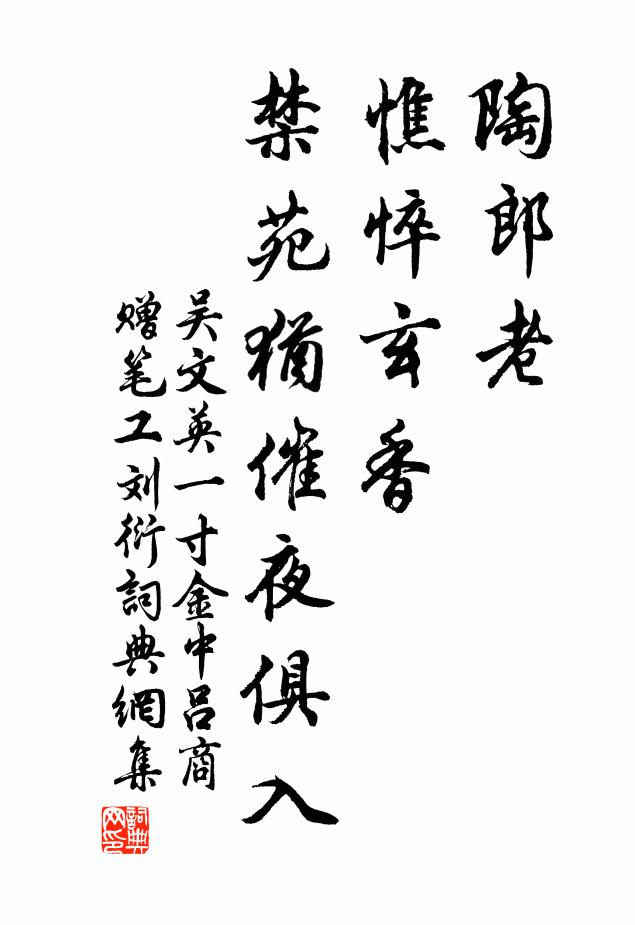 陶郎老
憔悴玄香
禁苑猶催夜俱入
吴文英一寸金中吕商
赠笔工刘衍詞典網集
詞典网印